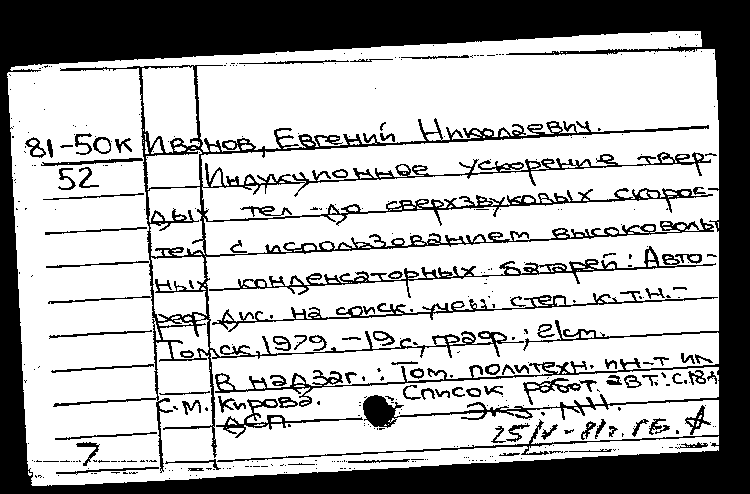 81-50к Иванов, Евгений Николаевич.
52 Индукционное ускорение твер-
дых тел до сверхзвуковых скорос-
тей с использованием высоковольт
ных конденсаторных батарей: Авто-
реф. дис. на соиск. учен. степ. к.т.н.-
Томск, 1979. -19 с., граф.; 21см.
В надзаг.: Том. политехн. ин-т им.
С.М. Кирова. Список работ. авт.: с.18-19
ДСП. Экз. №Н.
7 25/V-81г. ГБ.